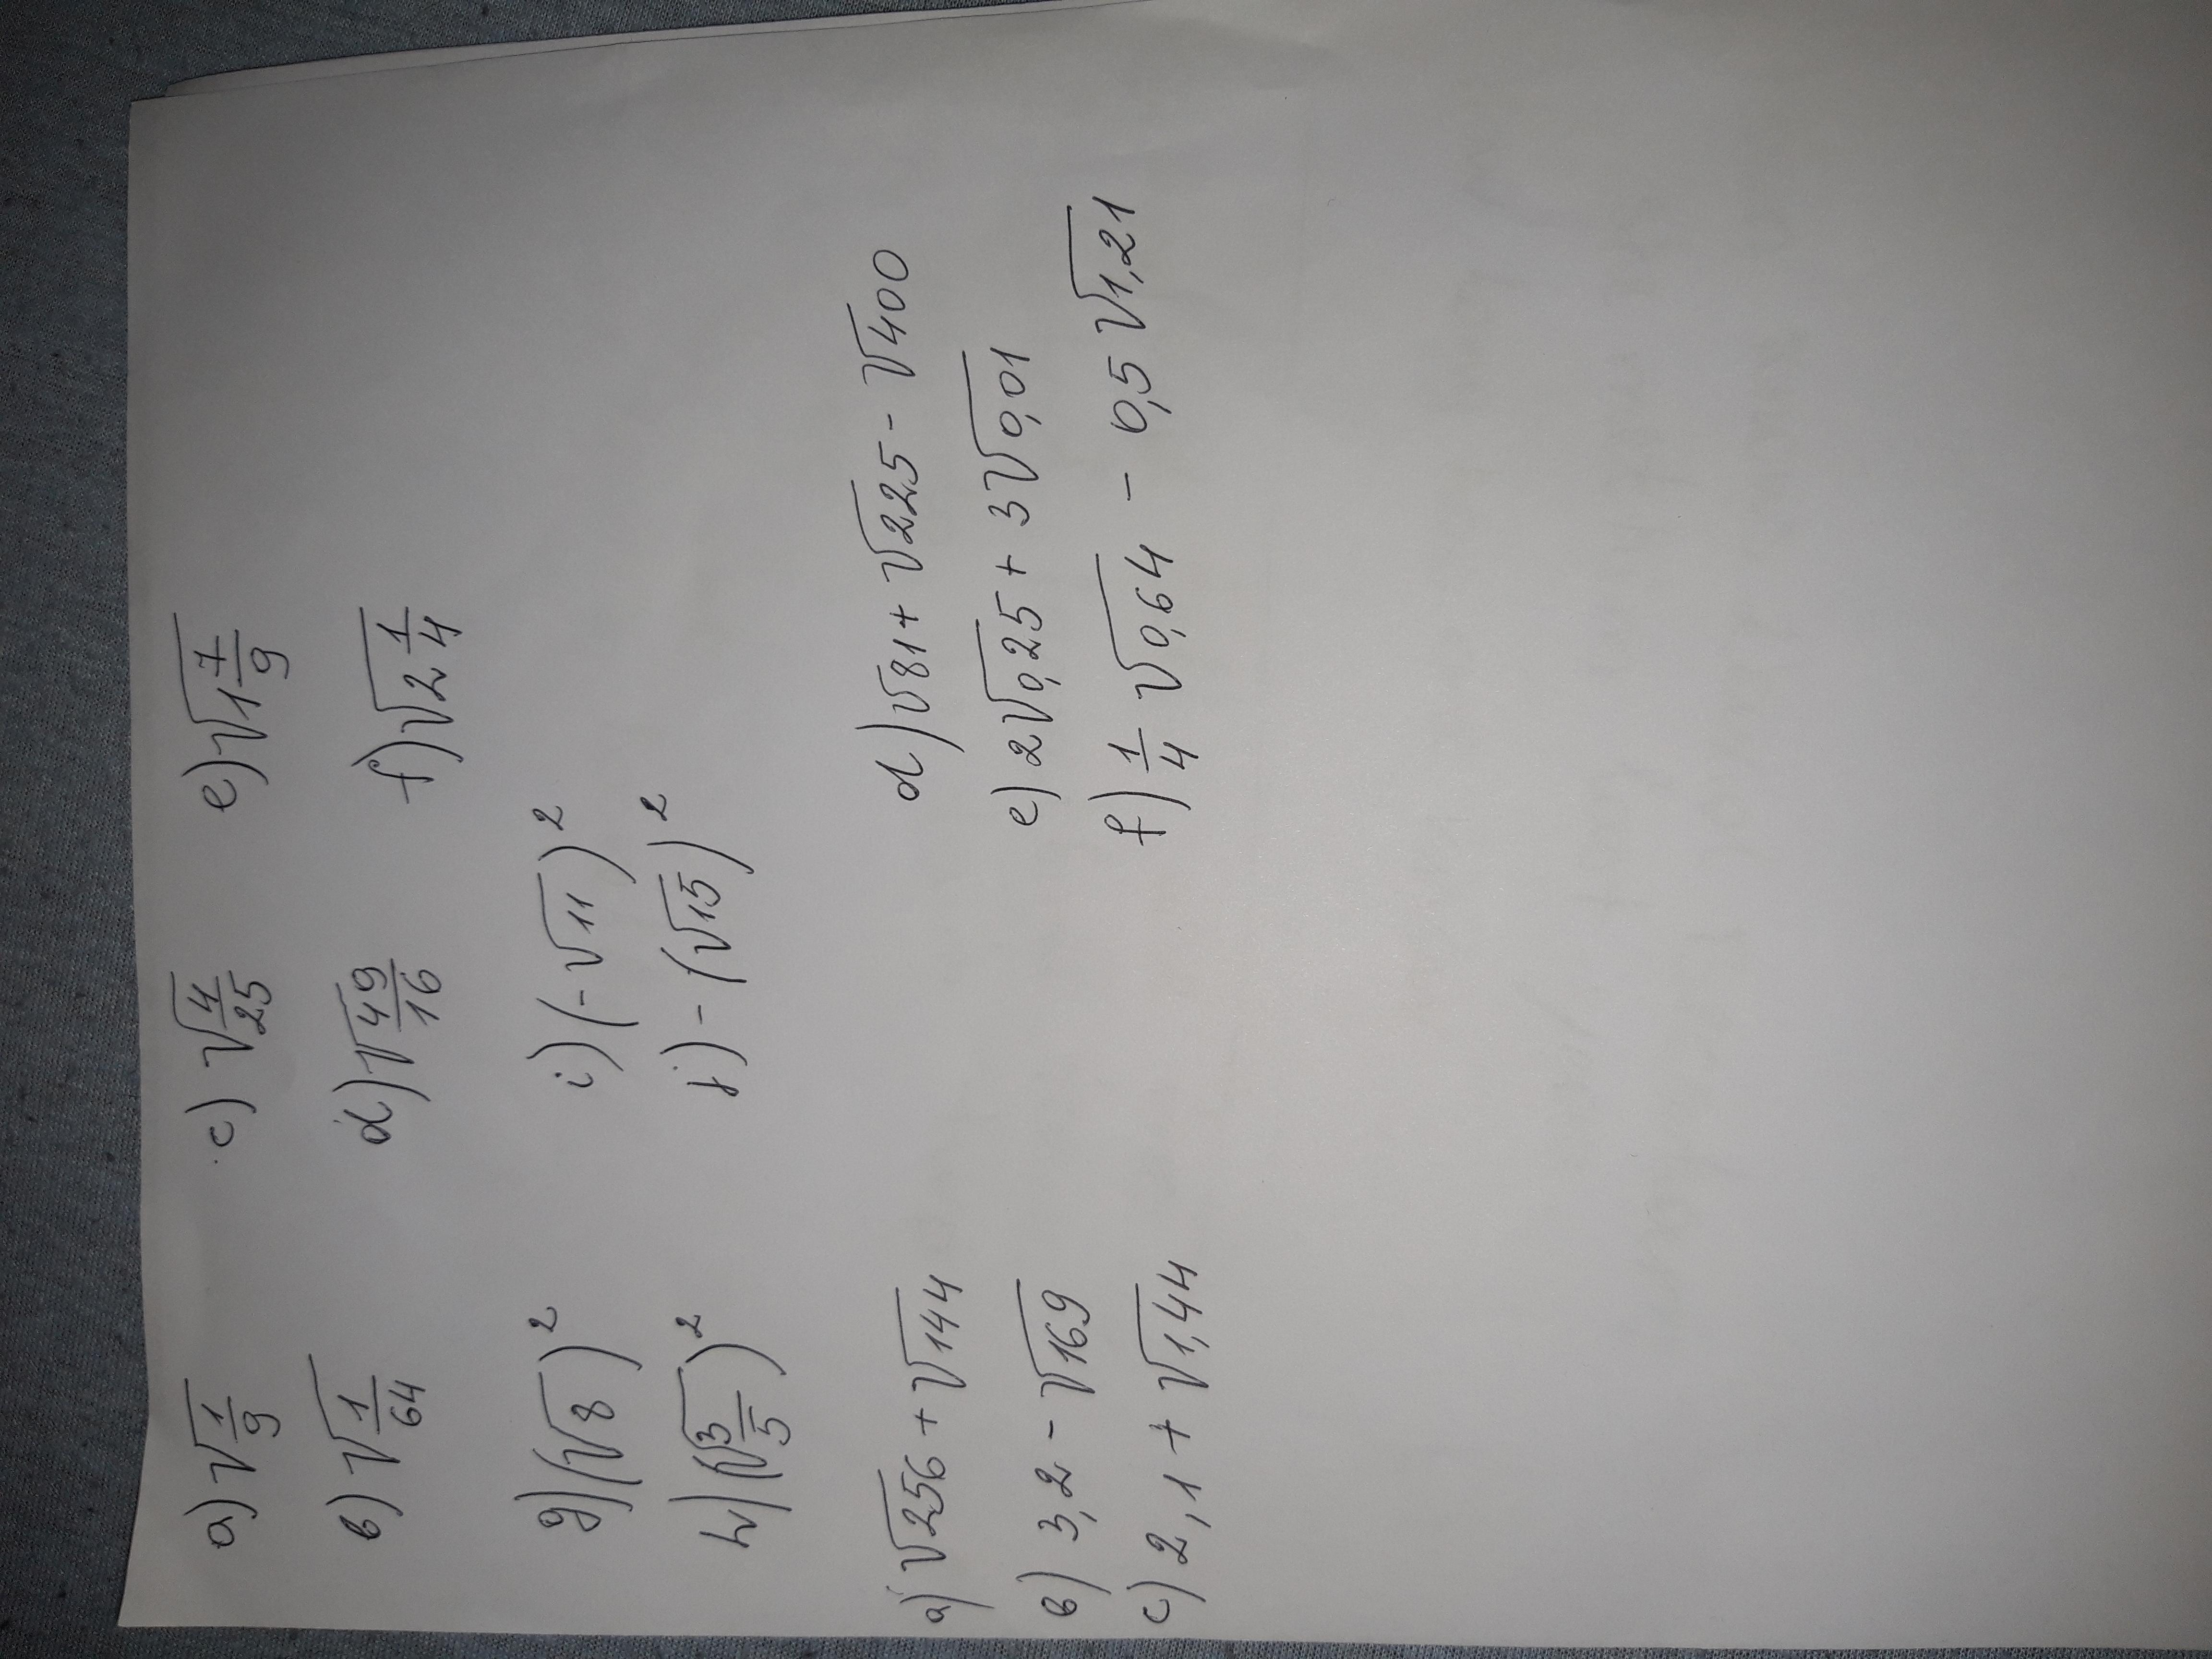 a) √1/9 c) √4/25 e) √1 7/9
b) √1/64 d) √49/16 f) √2 1/4
g) (√8)² i) (-√11)²
h) (√3/5)² j) -(√15)²
a) √256 + √144 d) √81 + √225 - √400
b) 3,2 - √169 e) 2√0,25 + 3√0,01
c) 2,1 + √1,44 f) 1/4 √0,64 - 0,5 √1,21